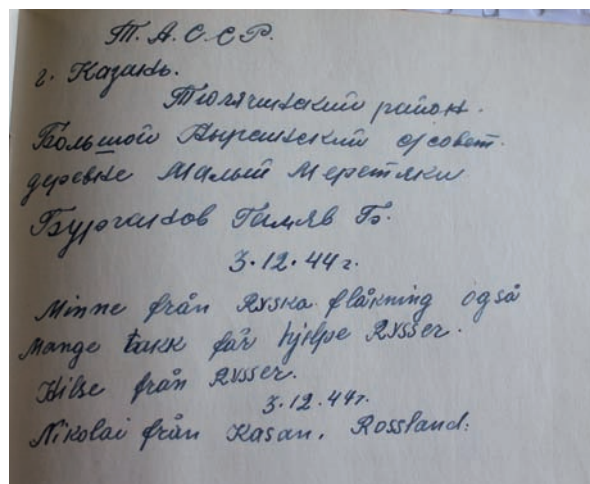 Т. А. С. С. Р.
г. Казань.
Тюлячинский район.
Большой Нырсинский с/совет.
деревне Малый Меретяки
Бурганов Гамяв Б.
3.12.44 г.
Minne från Ryska flåkning også
Mange takk får hjelpe Rysser.
Hilse från Rysser.
3.12.44г.
Nikolai från Kasan. Rossland.